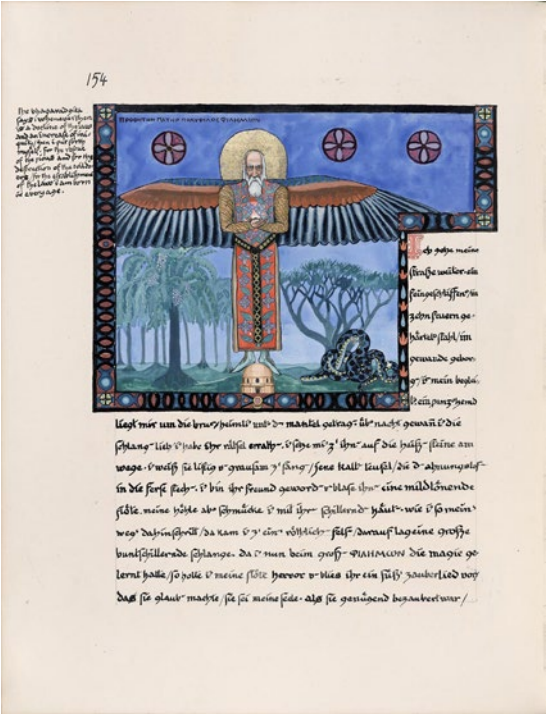 154
the bhagavadgita
says: whenever there
is a decline of the law
and an increase of ini-
quity/ then i put forth
myself. for the rescue
of the pious and for the
destruction of the evildo-
ers/ for the establishment
of the law i am born
in every age.
ΠΡΟΦΗΤΩΝ ΠΑΤΗΡ ΦΙΛΗΜΩΝ
Ich gehe meine
straße weiter. ein
feingeschliffen/in
zehn feuern ge-
härtet stahl/im
gewande gebor-
g/ mein beglei-
ein panzhemd
liegt mir um die brust/heimli unt mantel getrag. üb nacht gewan die
schlang lieb habe ihr rätsel errath. setze mi z' ihn auf die heiß steine am
wege. weiß sie listig grausam z' fang/jene kalt teufel/die ahnungslos
in die ferse stech. bin ihr freund geword blase ihn eine mildtönende
flöte. meine höhle ab schmücke mit ihr schillernd häut. wie so mein
weg dahinschritt/da kam z' ein röthlich fels/darauf lag eine große
buntschillernde schlange. da nun beim groß ΦΙΛΗΜΩΝ die magie ge-
lernt hatte/so holte meine flöte hervor blies ihr ein süß zauberlied vor
das sie glaub machte/sie sei meine seele. als sie genügend bezaubert war/